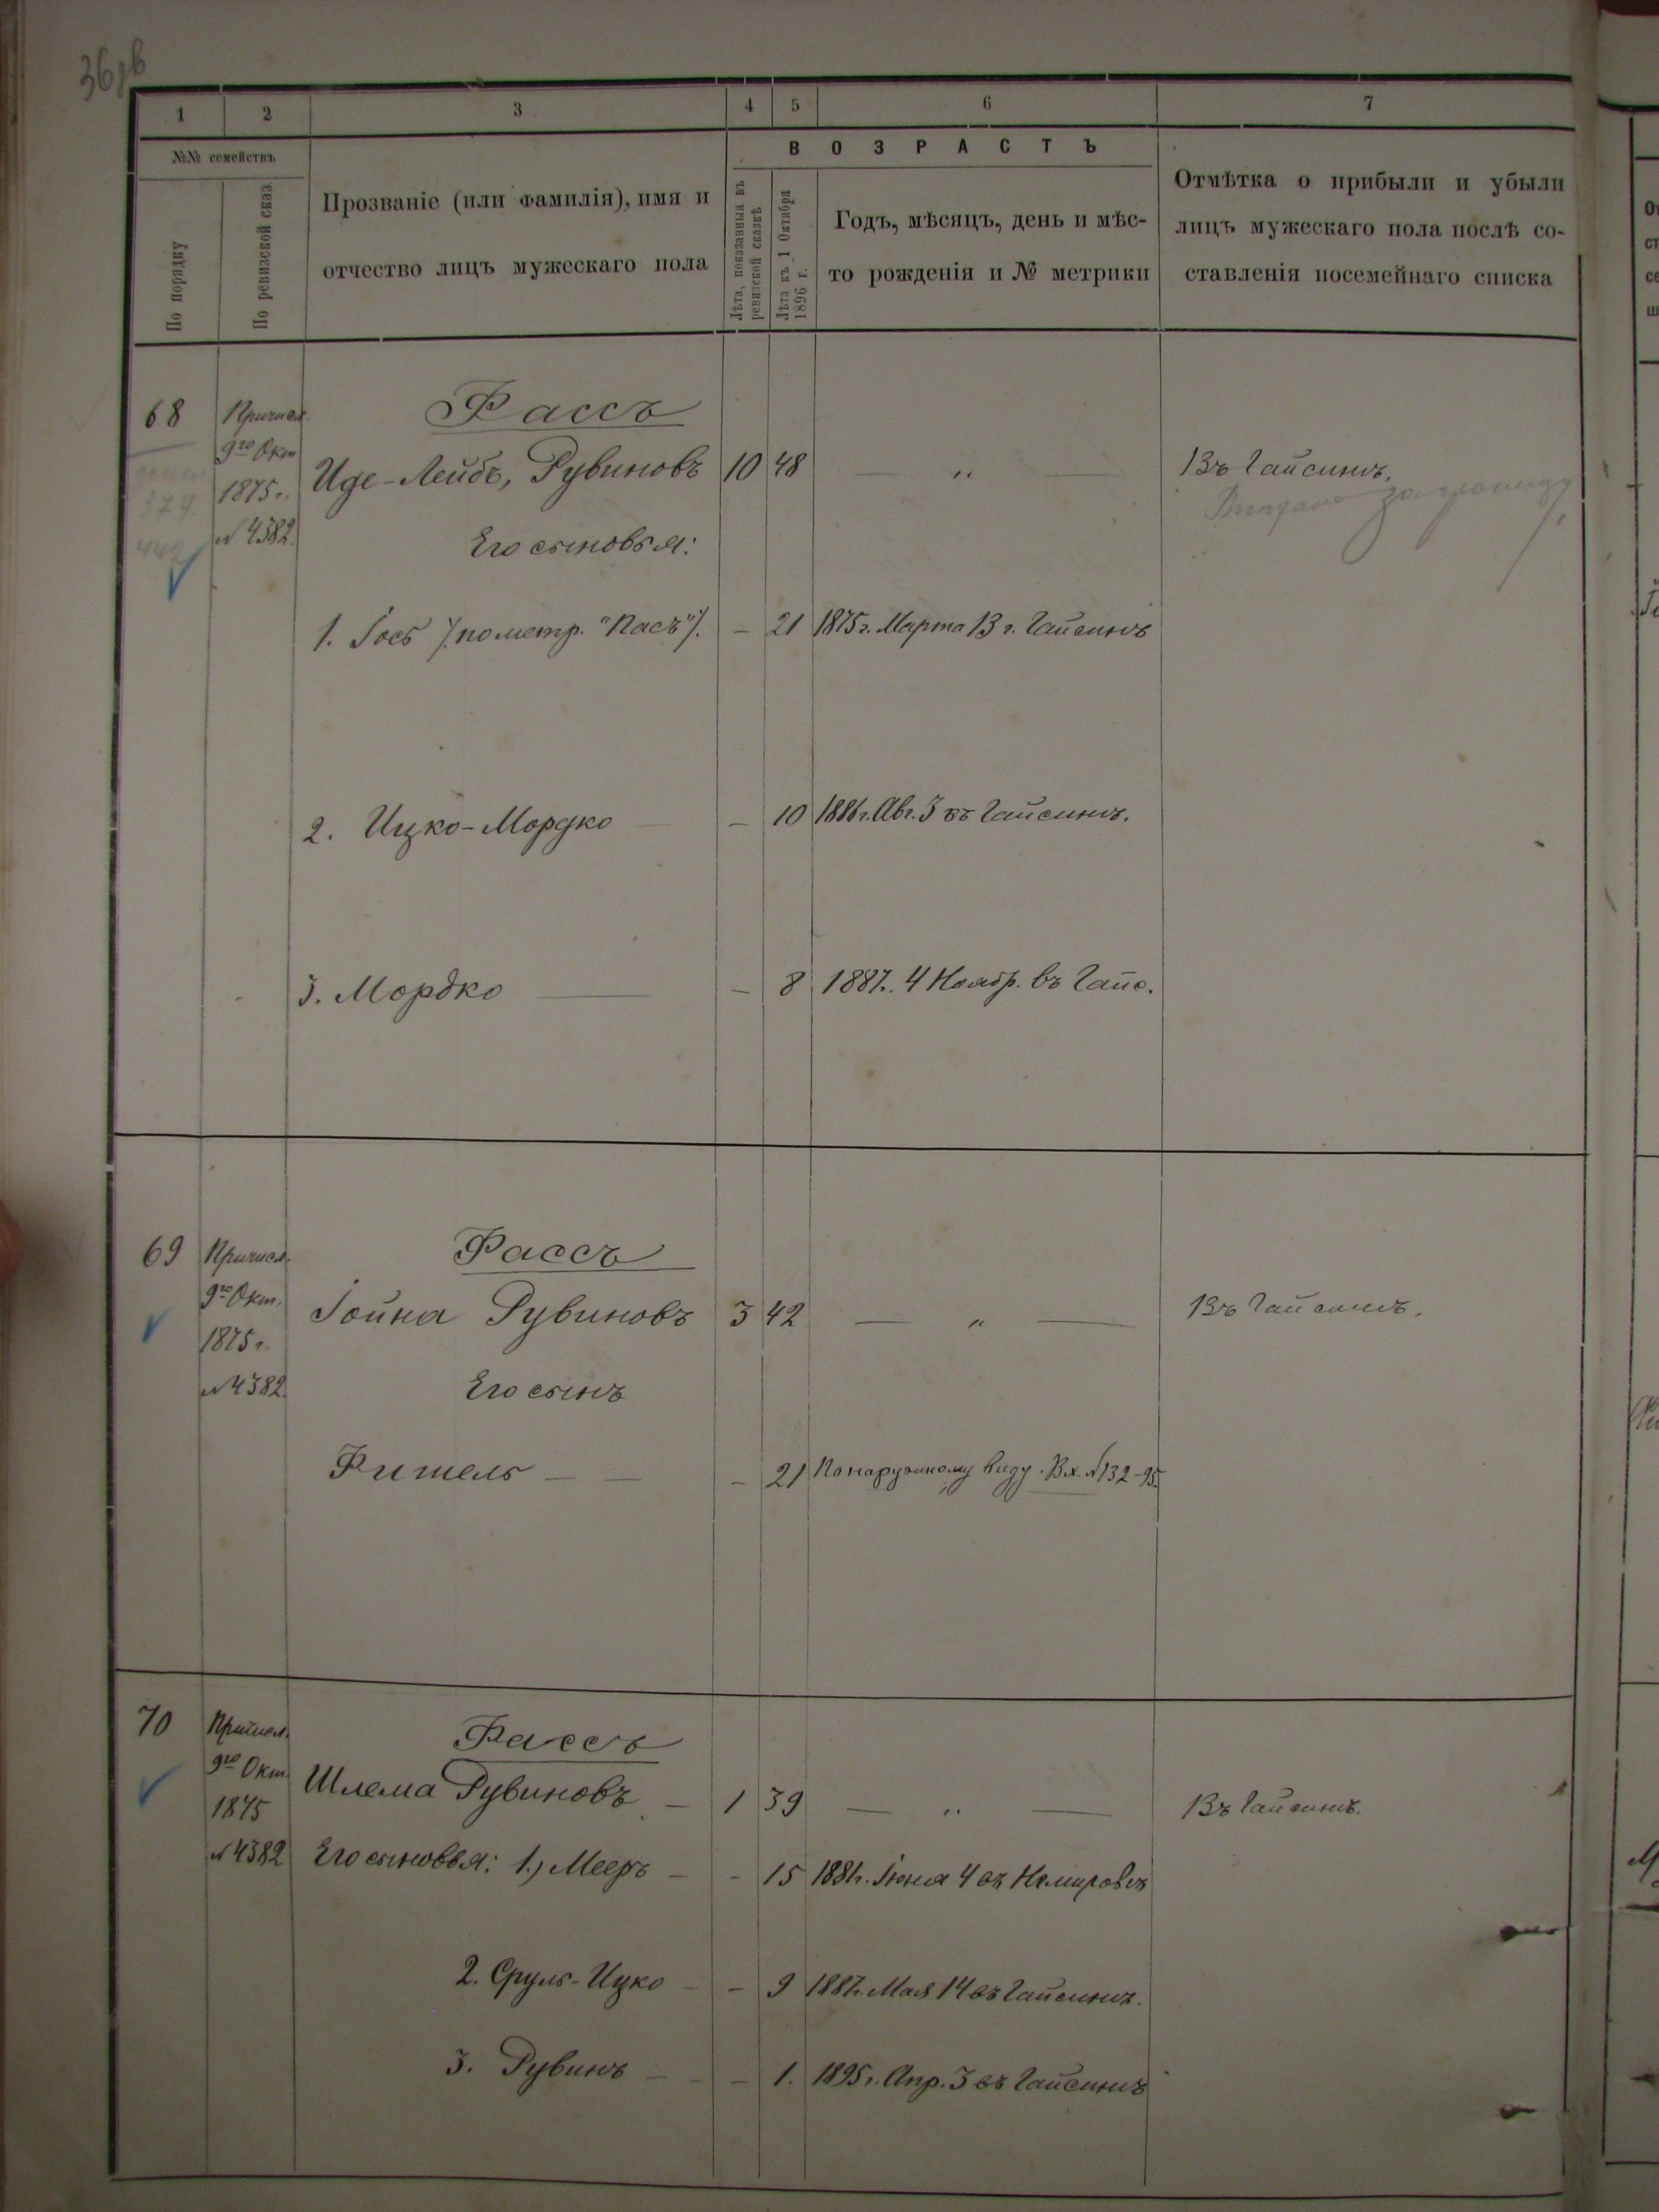 1 2 3 4 5 6 7
№№ семействъ
По порядку
По ревизской сказ.
Прозваніе (или фамилія), имя и
отчество лицъ мужескаго пола
ВОЗРАСТЪ
Лѣта, показанныя въ
ревизской сказкѣ
Лѣта къ 1 Октября
1896 г.
Годъ, мѣсяцъ, день и мѣс-
то рожденія и № метрики
Отмѣтка о прибыли и убыли
лицъ мужескаго пола послѣ со-
ставленія посемейнаго списка
68 Причисл. Рассъ
9го Окт
1875г.
№ 4382.
374.
Иде-Лейбъ, Рувиновъ 10 48 — „ — Въ Гайсинѣ.
за границу
Его сыновья:
1. Іось /по метр. "Пасъ"/. – 21 1875 г. Марта 13 г. Гайсинъ
2. Ицко-Мордко – 10 1886 г. Авг. 3 въ Гайсинѣ.
3. Мордко – 8 1887г. 4 Ноябр. въ Гайс.
69 Причисл. Рассъ
9го Окт.
1875 г.
№ 4382.
Іойна Рувиновъ 3 42 — „ — Въ Гайсинѣ.
Его сынъ
Фишель – 21 По наружному виду. Вх. № 132-95.
70 Причисл. Рассъ
9го Окт.
1875
№ 4382
Шлема Рувиновъ – 1 39 — „ — Въ Гайсинѣ.
Его сыновья: 1.) Мееръ – 15 1881г. Іюня 4 въ Немировѣ
2. Сруль-Ицко – 9 1887г. Мая 14 въ Гайсинѣ.
3. Рувинъ – 1. 1895 г. Апр. 3 въ Гайсинѣ